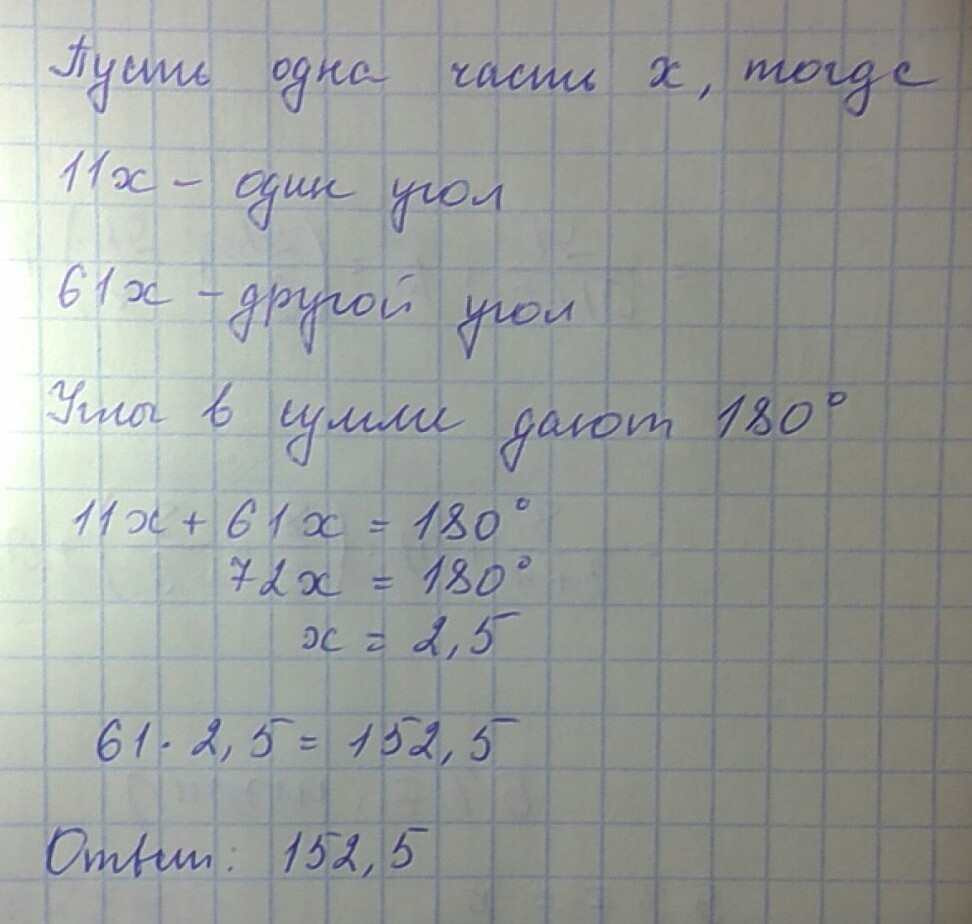 Пусть одна часть x, тогда
11x - один угол
61x - другой угол
Углы в сумме дают 180°
11x + 61x = 180°
72x = 180°
x = 2,5
61 · 2,5 = 152,5
Ответ: 152,5